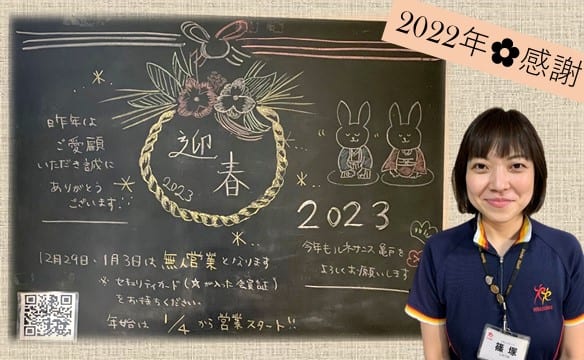 2022年✿感謝
昨年は
ご愛顧
いただき誠に
ありがとう
ございます!!
迎
春
2023
2023
今年もルネサンス亀戸を
よろしくお願いします
12月29日、1月3日は無人営業となります
※セキュリティカード(☆が入った会員証)
をお持ちください
年始は1/4から営業スタート!!
篠塚